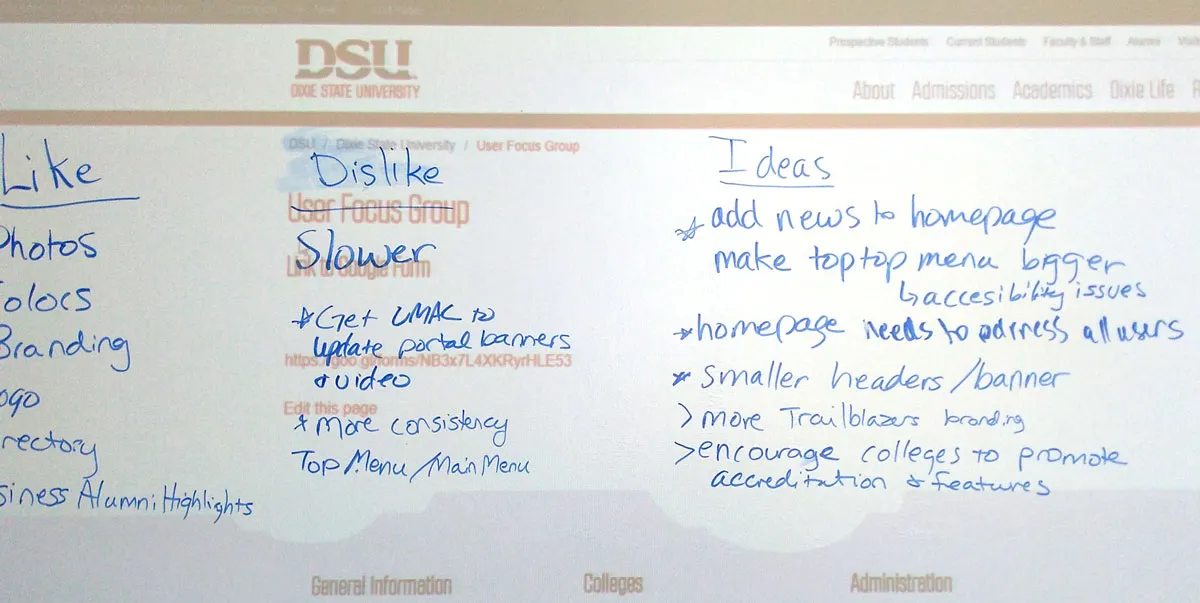 DSU
DIXIE STATE UNIVERSITY
Prospective Students Current Students Faculty & Staff Alumni
About Admissions Academics Dixie Life
DSU / Dixie State University / User Focus Group
User Focus Group
Link to Google Form
https://goo.gl/forms/NB3x7L4XKRyrHLE53
Edit this page
Like
Photos
Colors
Branding
ogo
rectory
siness Alumni Highlights
Dislike
Slower
* Get UMAC to
update portal banners
& video
* More consistency
Top Menu / Main Menu
Ideas
* add news to homepage
make top top menu bigger
↳ accesibility issues
* homepage needs to adrress all users
* smaller headers / banner
> more Trailblazers branding
> encourage colleges to promote
accreditation & features
General Information Colleges Administration